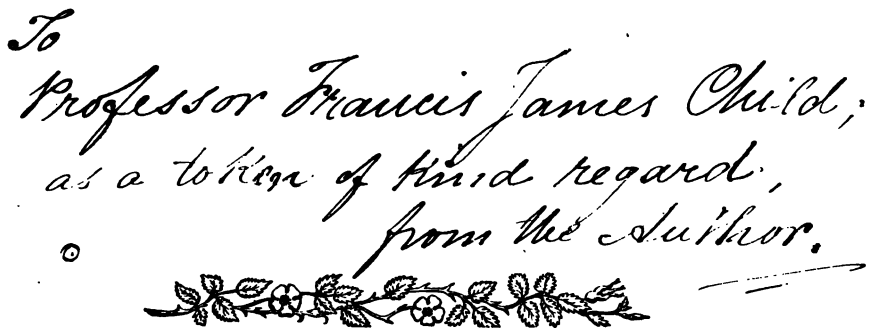 To
Professor Francis James Child;
as a token of kind regard,
from the Author.